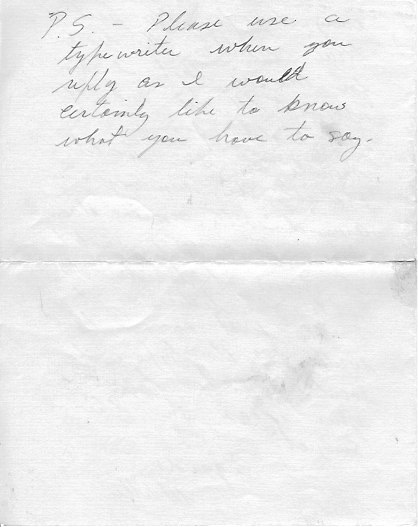 P.S. - Please use a
typewriter when you
reply as I would
certainly like to know
what you have to say.